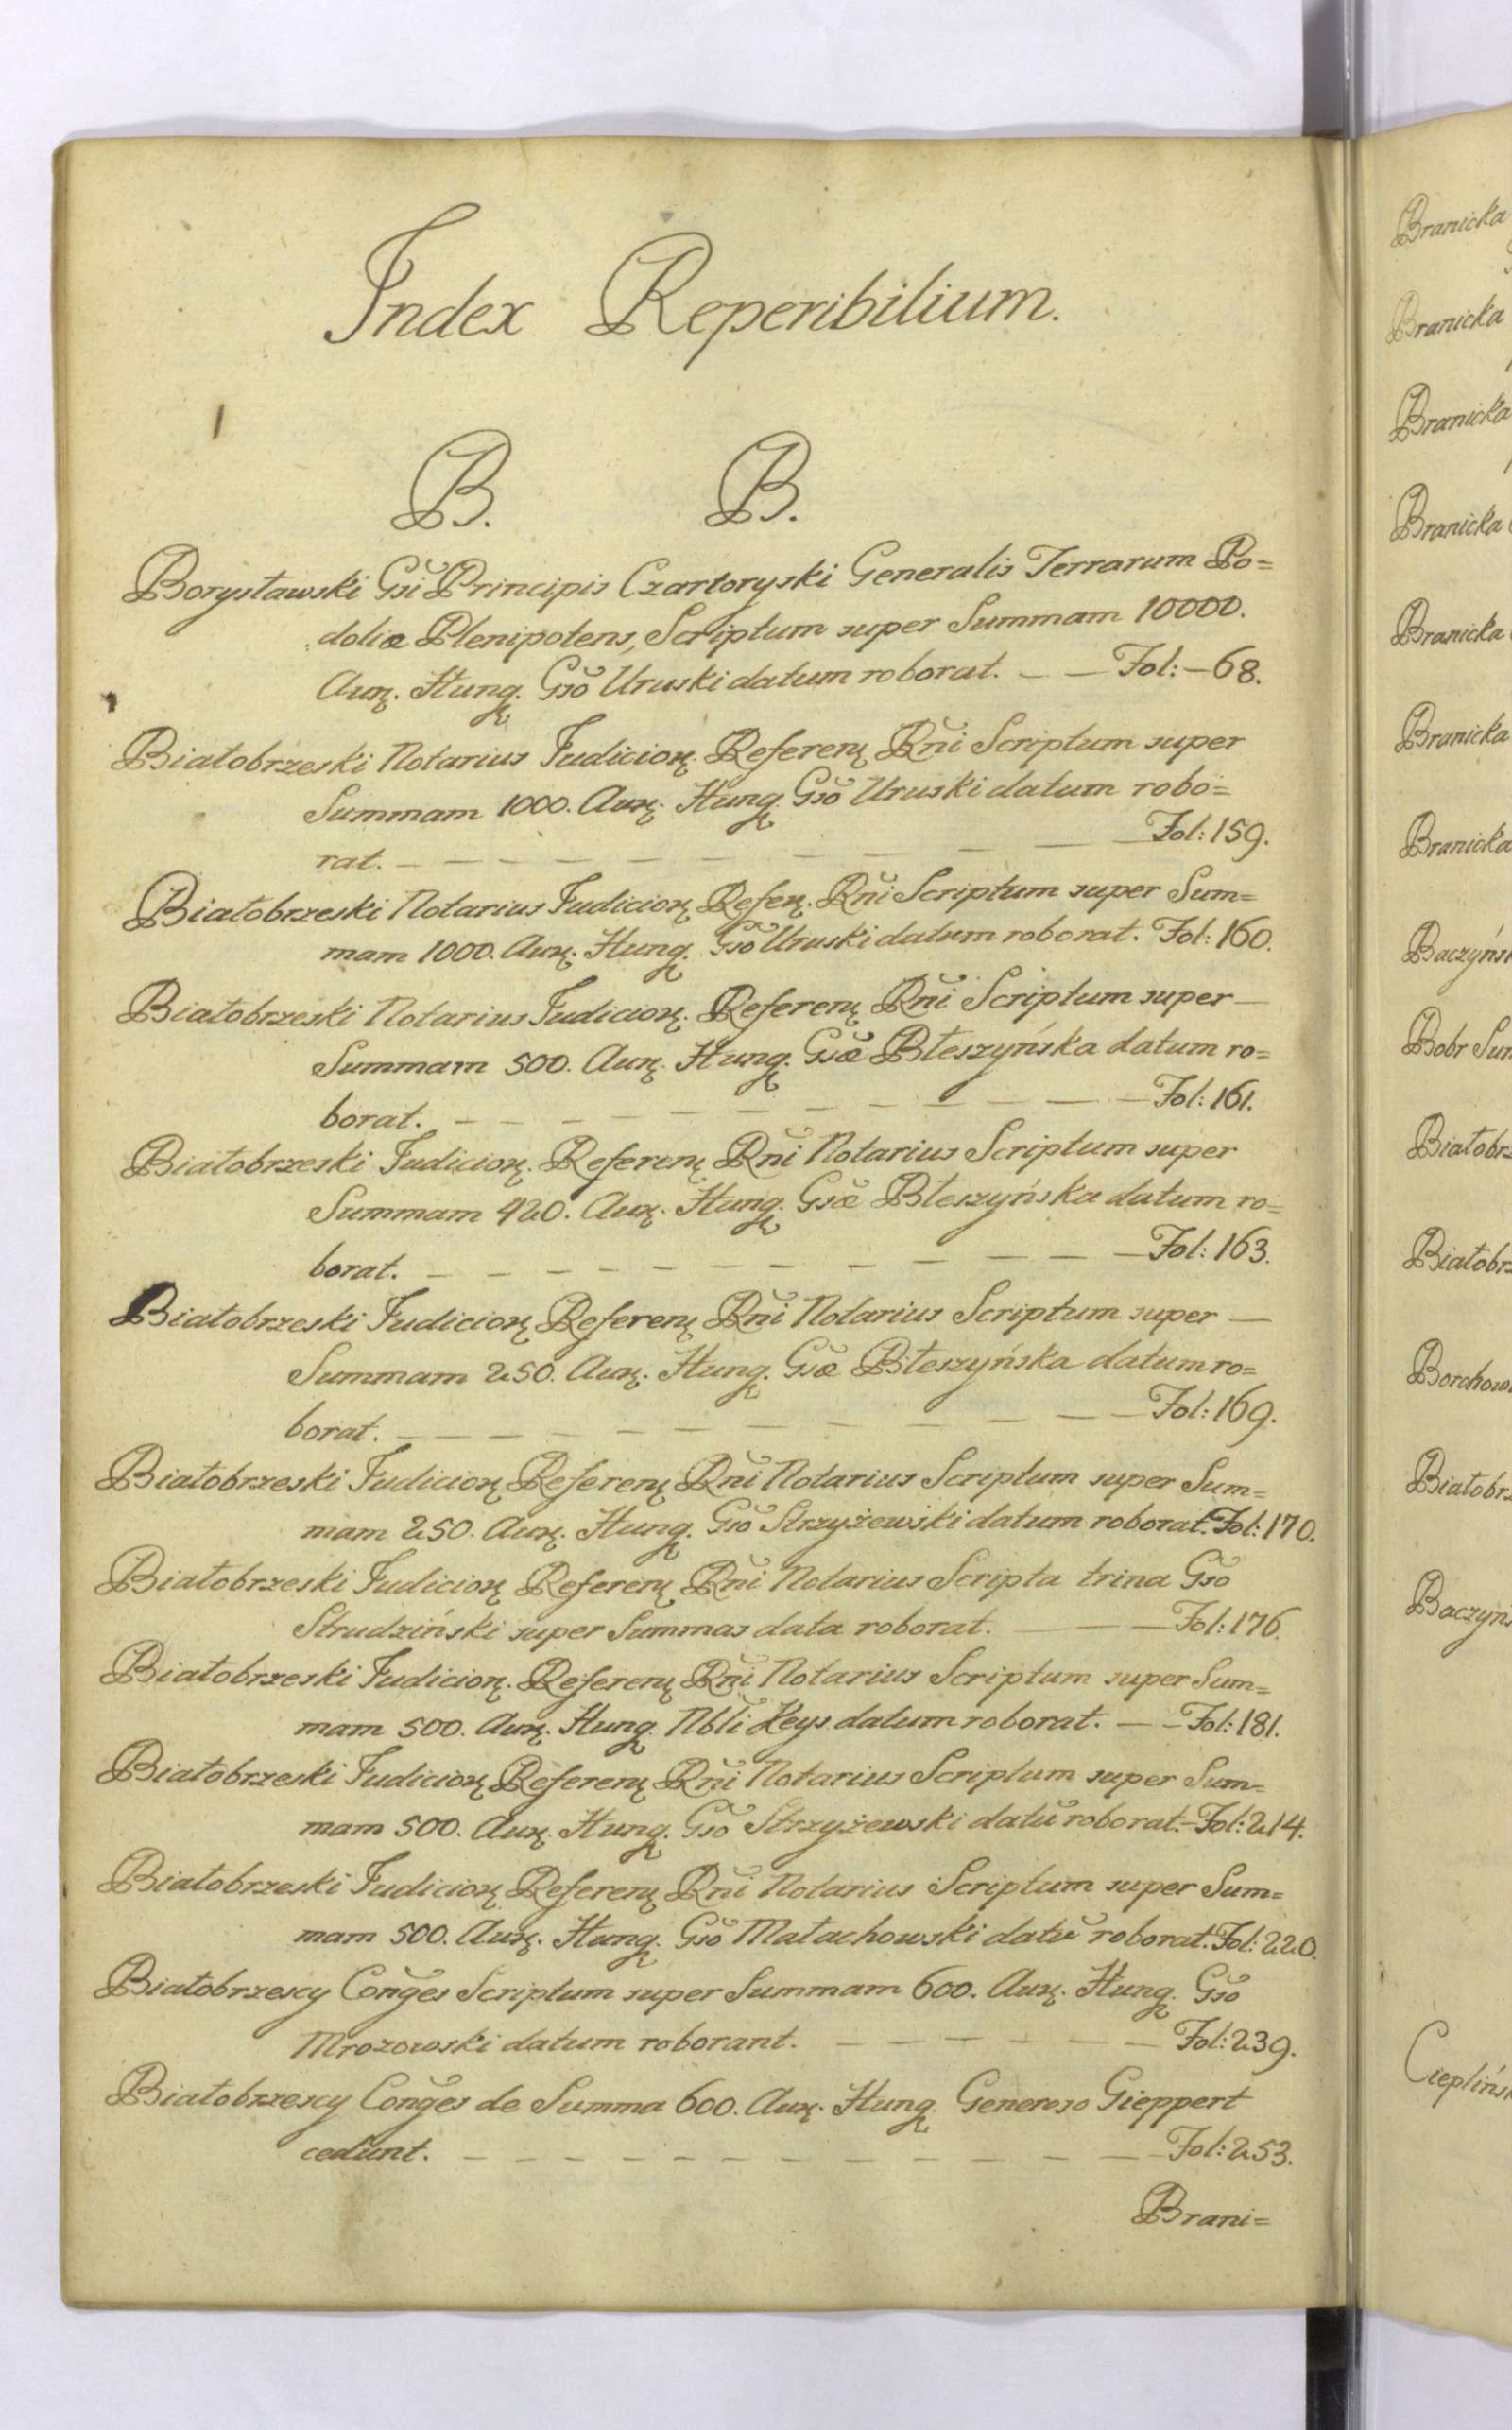 Index Reperibilium.
B. B.
Borysławski Gsi Principis Czartoryski Generalis Terrarum Po=
doliæ Plenipotens, Scriptum super Summam 10000.
Aurꝝ. Hungꝝ. Gso Uruski datum roborat. — — Fol: — 68.
Białobrzeski Notarius Judiciorꝝ. Referenꝝ Rni Scriptum super
Summam 1000. Aurꝝ. Hungꝝ. Gso Uruski datum robo=
rat. — — — — — — — — — — Fol: 159.
Białobrzeski Notarius Judiciorꝝ Referꝝ. Rni Scriptum super Sum=
mam 1000. Aurꝝ. Hungꝝ. Gso Uruski datum roborat. Fol: 160.
Białobrzeski Notarius Judiciorꝝ. Referenꝝ Rni Scriptum super —
Summam 500. Aurꝝ. Hungꝝ. Gsæ Błeszyńska datum ro=
borat. — — — — — — — — — — Fol: 161.
Białobrzeski Judiciorꝝ. Referenꝝ Rni Notarius Scriptum super
Summam 420. Aurꝝ. Hungꝝ. Gsæ Błeszyńska datum ro=
borat. — — — — — — — — — — Fol: 163.
Białobrzeski Judiciorꝝ Referenꝝ Rni Notarius Scriptum super —
Summam 250. Aurꝝ. Hungꝝ. Gsæ Błeszyńska datum ro=
borat. — — — — — — — — — — Fol: 169.
Białobrzeski Judiciorꝝ Referenꝝ Rni Notarius Scriptum super Sum=
mam 250. Aurꝝ. Hungꝝ. Gso Strzyżewski datum roborat. Fol: 170.
Białobrzeski Judiciorꝝ Referenꝝ Rni Notarius Scripta trina Gso
Strudziński super Summas data roborat. — — — Fol: 176.
Białobrzeski Judiciorꝝ. Referenꝝ Rni Notarius Scriptum super Sum=
mam 500. Aurꝝ. Hungꝝ. Nbli Heys datum roborat. — — Fol: 181.
Białobrzeski Judiciorꝝ Referenꝝ Rni Notarius Scriptum super Sum=
mam 500. Aurꝝ. Hungꝝ. Gso Strzyżewski datũ roborat. — Fol: 214.
Białobrzeski Judiciorꝝ Referenꝝ Rni Notarius Scriptum super Sum=
mam 500. Aurꝝ. Hungꝝ. Gso Małachowski datũ roborat. Fol: 220.
Białobrzescy Conges Scriptum super Summam 600. Aurꝝ. Hungꝝ. Gso
Mrozowski datum roborant. — — — — — — Fol: 239.
Białobrzescy Conges de Summa 600. Aurꝝ. Hungꝝ. Generoso Gieppert
cedunt. — — — — — — — — — — Fol: 253.
Brani=
Branicka
Branicka
Branicka
Branicka
Branicka
Branicka
Branicka
Bobr